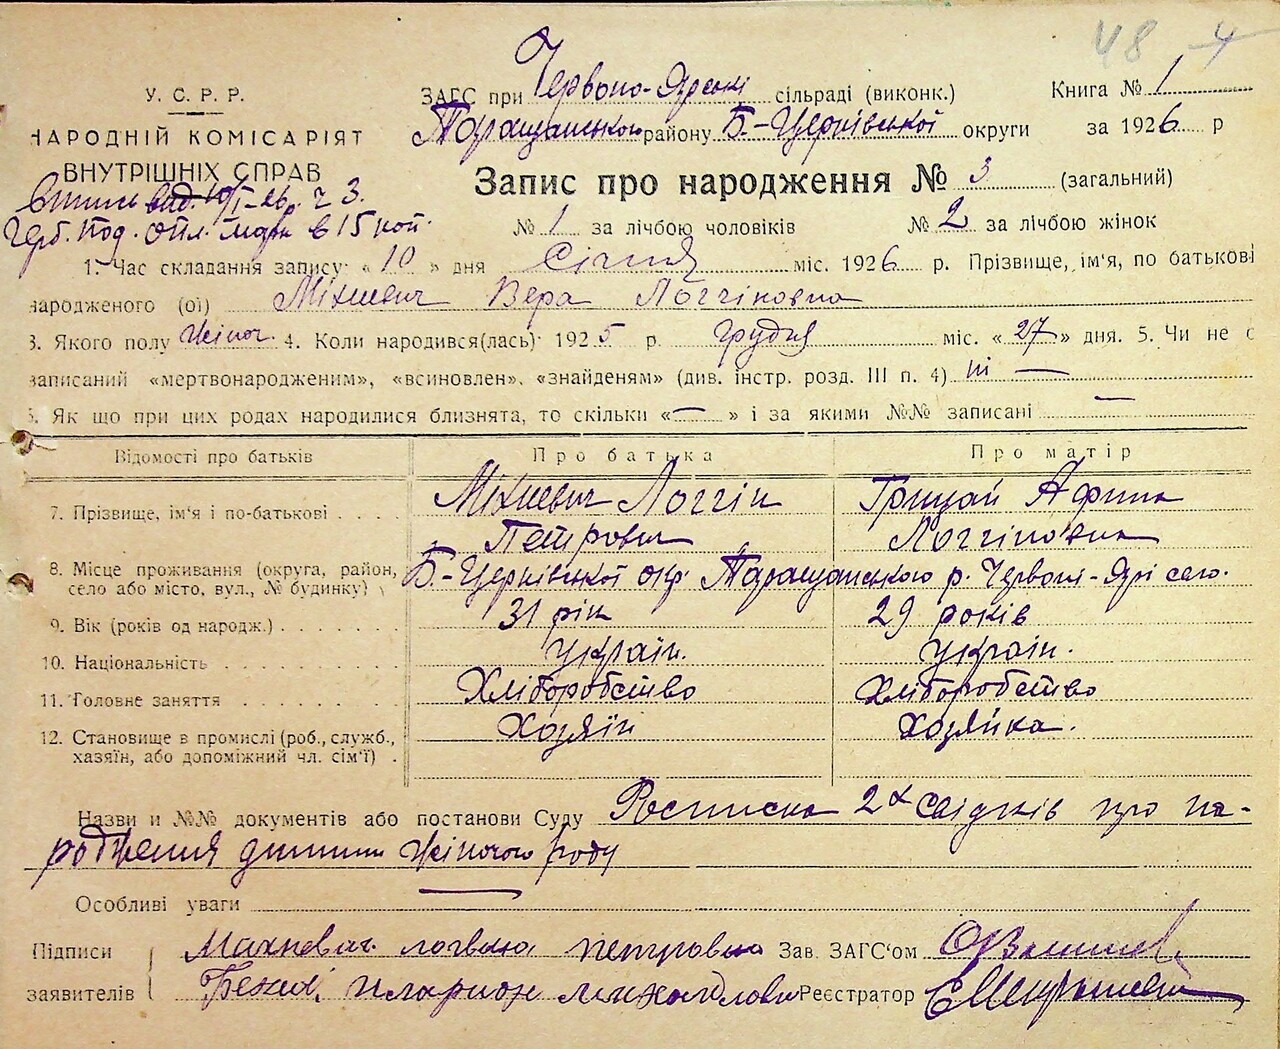 48 4
У. С. Р. Р.
НАРОДНІЙ КОМІСАРІЯТ
ВНУТРІШНІХ СПРАВ
вид. 10/I-26 р. ч 3.
Герб. под. опл. марк в 15 коп.
ЗАГС при Червоно-Ярській сільраді (виконк.) Книга № 1
Таращанського району Б.-Церківської округи за 1926 р
Запис про народження № 3 (загальний)
№ 1 за лічбою чоловіків № 2 за лічбою жінок
1. Час складання запису: « 10 » дня Січня міс. 1926 р. Прізвище, ім'я, по батькові
народженого (ої) Міхневич Вера Логгіновна
3. Якого полу жіноч. 4. Коли народився(лась) 1925 р. грудня міс. « 27 » дня. 5. Чи не є
записаний «мертвонародженим», «всиновлен», «знайденям» (див. інстр. розд. III п. 4) ні —
6. Як що при цих родах народилися близнята, то скільки « — » і за якими №№ записані —
Відомості про батьків Про батька Про матір
7. Прізвище, ім'я і по-батькові Міхневич Логгін Грицай Афина
Петрович Логгіновна
8. Місце проживання (округа, район, Б.-Церківської окр. Таращанського р. Червоні-Ярі село.
село або місто, вул., № будинку)
9. Вік (років од народж.) 31 рік 29 років
10. Національність україн. україн.
11. Головне заняття Хліборобство Хліборобство
12. Становище в промислі (роб., служб., Хозяїн Хозяйка.
хазяїн, або допоміжний чл. сім'ї)
Назви и №№ документів або постанови Суду Росписка 2х свідків про на-
родження дитини жіночого роду
Особливі уваги —
Підписи Махневич логвина петрович Зав. ЗАГС'ом
заявителів иларион Реєстратор